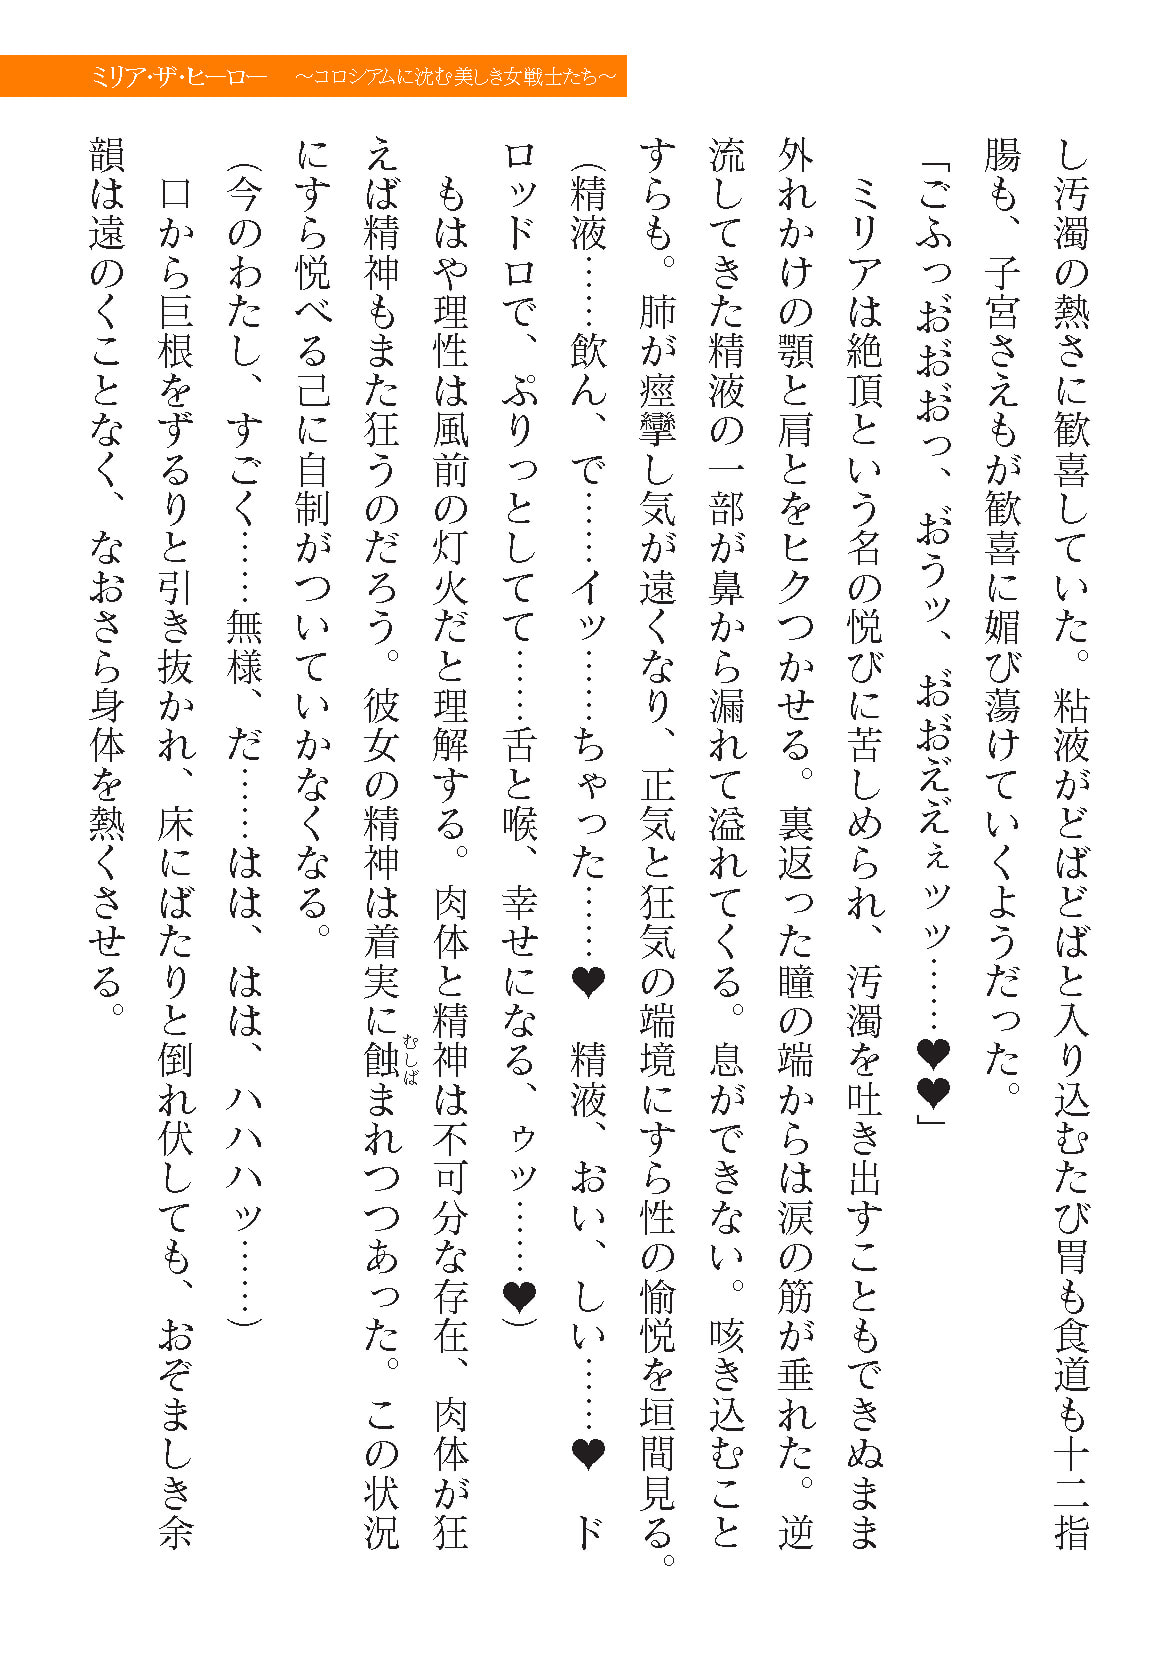 ミリア・ザ・ヒーロー　～コロシアムに沈む美しき女戦士たち～
し汚濁の熱さに歓喜していた。粘液がどばどばと入り込むたび胃も食道も十二指
腸も、子宮さえもが歓喜に媚び蕩けていくようだった。
「ごふっお゛お゛お゛っ、お゛うッ、お゛お゛え゛え゛ぇッッ……♥♥」
　ミリアは絶頂という名の悦びに苦しめられ、汚濁を吐き出すこともできぬまま
外れかけの顎と肩とをヒクつかせる。裏返った瞳の端からは涙の筋が垂れた。逆
流してきた精液の一部が鼻から漏れて溢れてくる。息ができない。咳き込むこと
すらも。肺が痙攣し気が遠くなり、正気と狂気の端境にすら性の愉悦を垣間見る。
（精液……飲ん、で……イッ……ちゃった……♥　精液、おい、しい……♥　ド
ロッドロで、ぷりっとしてて……舌と喉、幸せになる、ゥッ……♥）
　もはや理性は風前の灯火だと理解する。肉体と精神は不可分な存在、肉体が狂
えば精神もまた狂うのだろう。彼女の精神は着実に蝕むしばまれつつあった。この状況
にすら悦べる己に自制がついていかなくなる。
（今のわたし、すごく……無様、だ……はは、はは、ハハハッ……）
　口から巨根をずるりと引き抜かれ、床にばたりと倒れ伏しても、おぞましき余
韻は遠のくことなく、なおさら身体を熱くさせる。